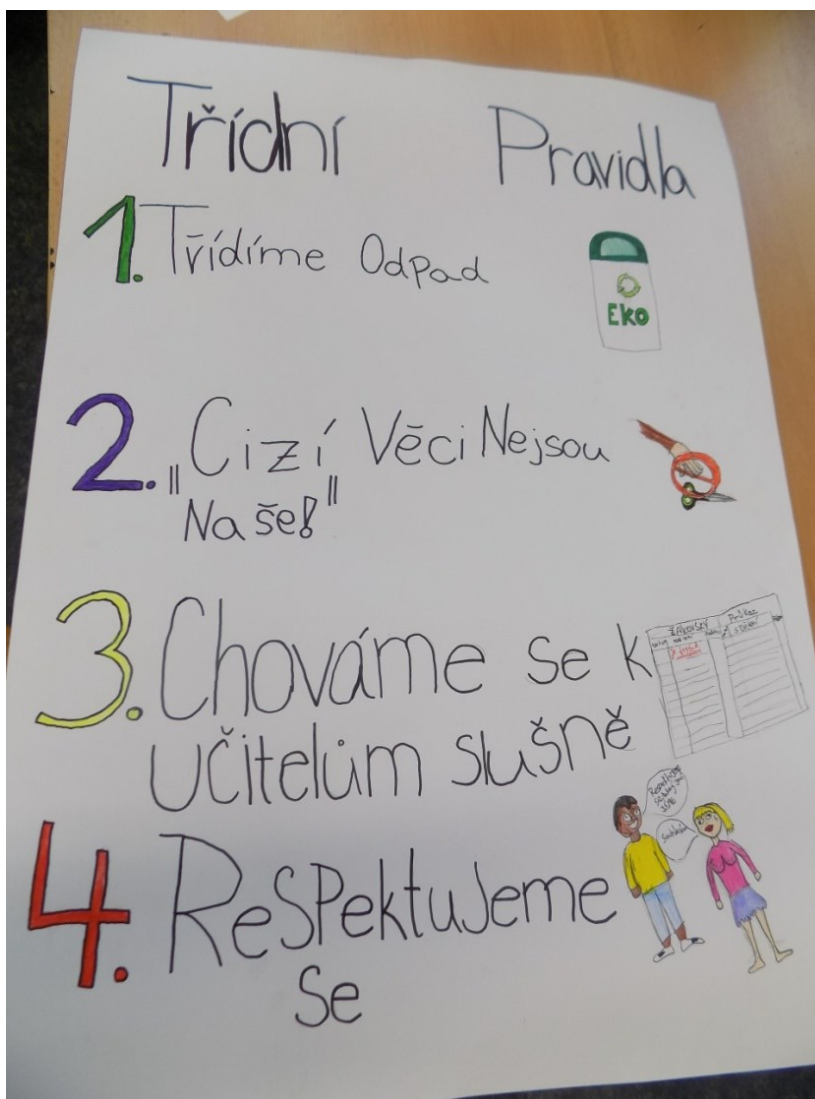 Třídní Pravidla
1. Třídíme Odpad
Eko
2. „Cizí" Věci Nejsou
Naše!"
3. Chováme se k
učitelům slušně
4. Respektujeme
se